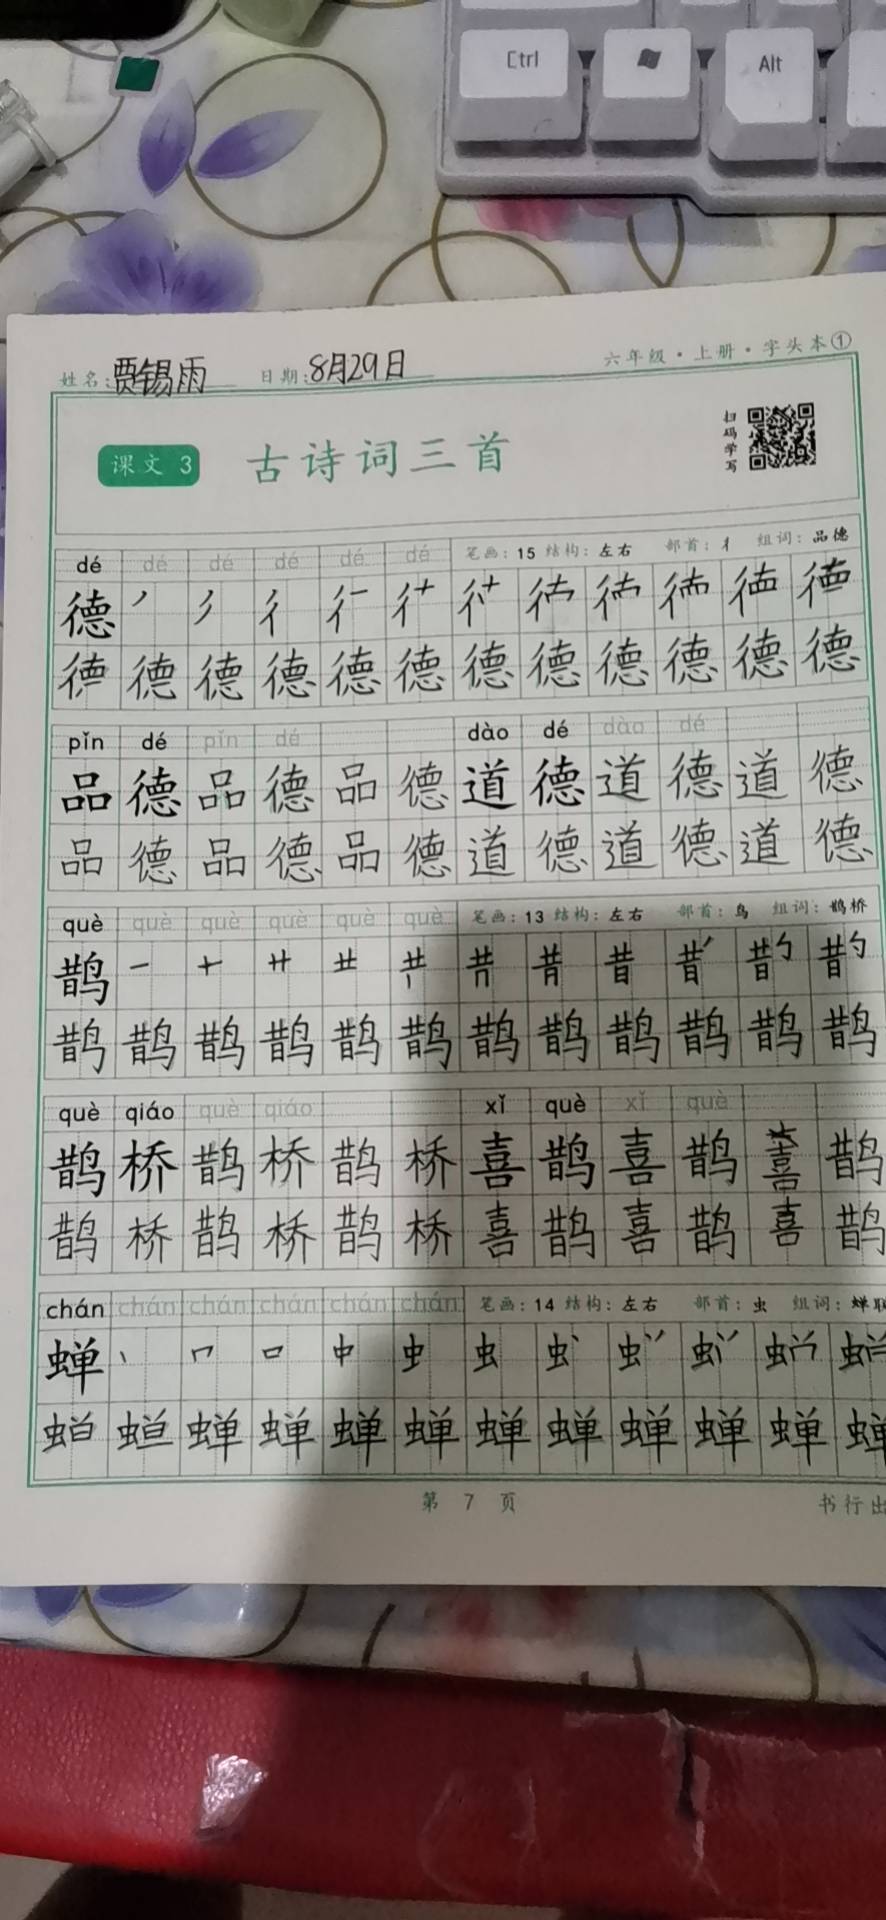 Ctrl Alt
六年级·上册·字头本①
姓名:贾锡雨 日期:8月29日
扫码学写
课文 3 古诗词三首
dé dé dé dé dé dé 笔画:15 结构:左右 部首:彳 组词:品德
德 ノ 彳
德 德 德 德 德 德 德 德 德 德 德
pǐn dé pǐn dé dào dé dào dé
品 德 品 德 品 德 道 德 道 德 道 德
品 德 品 德 品 德 道 德 道 德 道 德
què què què què què què 笔画:13 结构:左右 部首:鸟 组词:鹊桥
鹊 一 十 卄 昔
鹊 鹊 鹊 鹊 鹊 鹊 鹊 鹊 鹊 鹊 鹊 鹊
què qiáo què qiáo xǐ què xǐ què
鹊 桥 鹊 桥 鹊 桥 喜 鹊 喜 鹊 喜 鹊
鹊 桥 鹊 桥 鹊 桥 喜 鹊 喜 鹊 喜 鹊
chán chán chán chán chán chán 笔画:14 结构:左右 部首:虫 组词:蝉
蝉 丶 口 中 虫
蝉 蝉 蝉 蝉 蝉 蝉 蝉 蝉 蝉 蝉
第 7 页 书行出